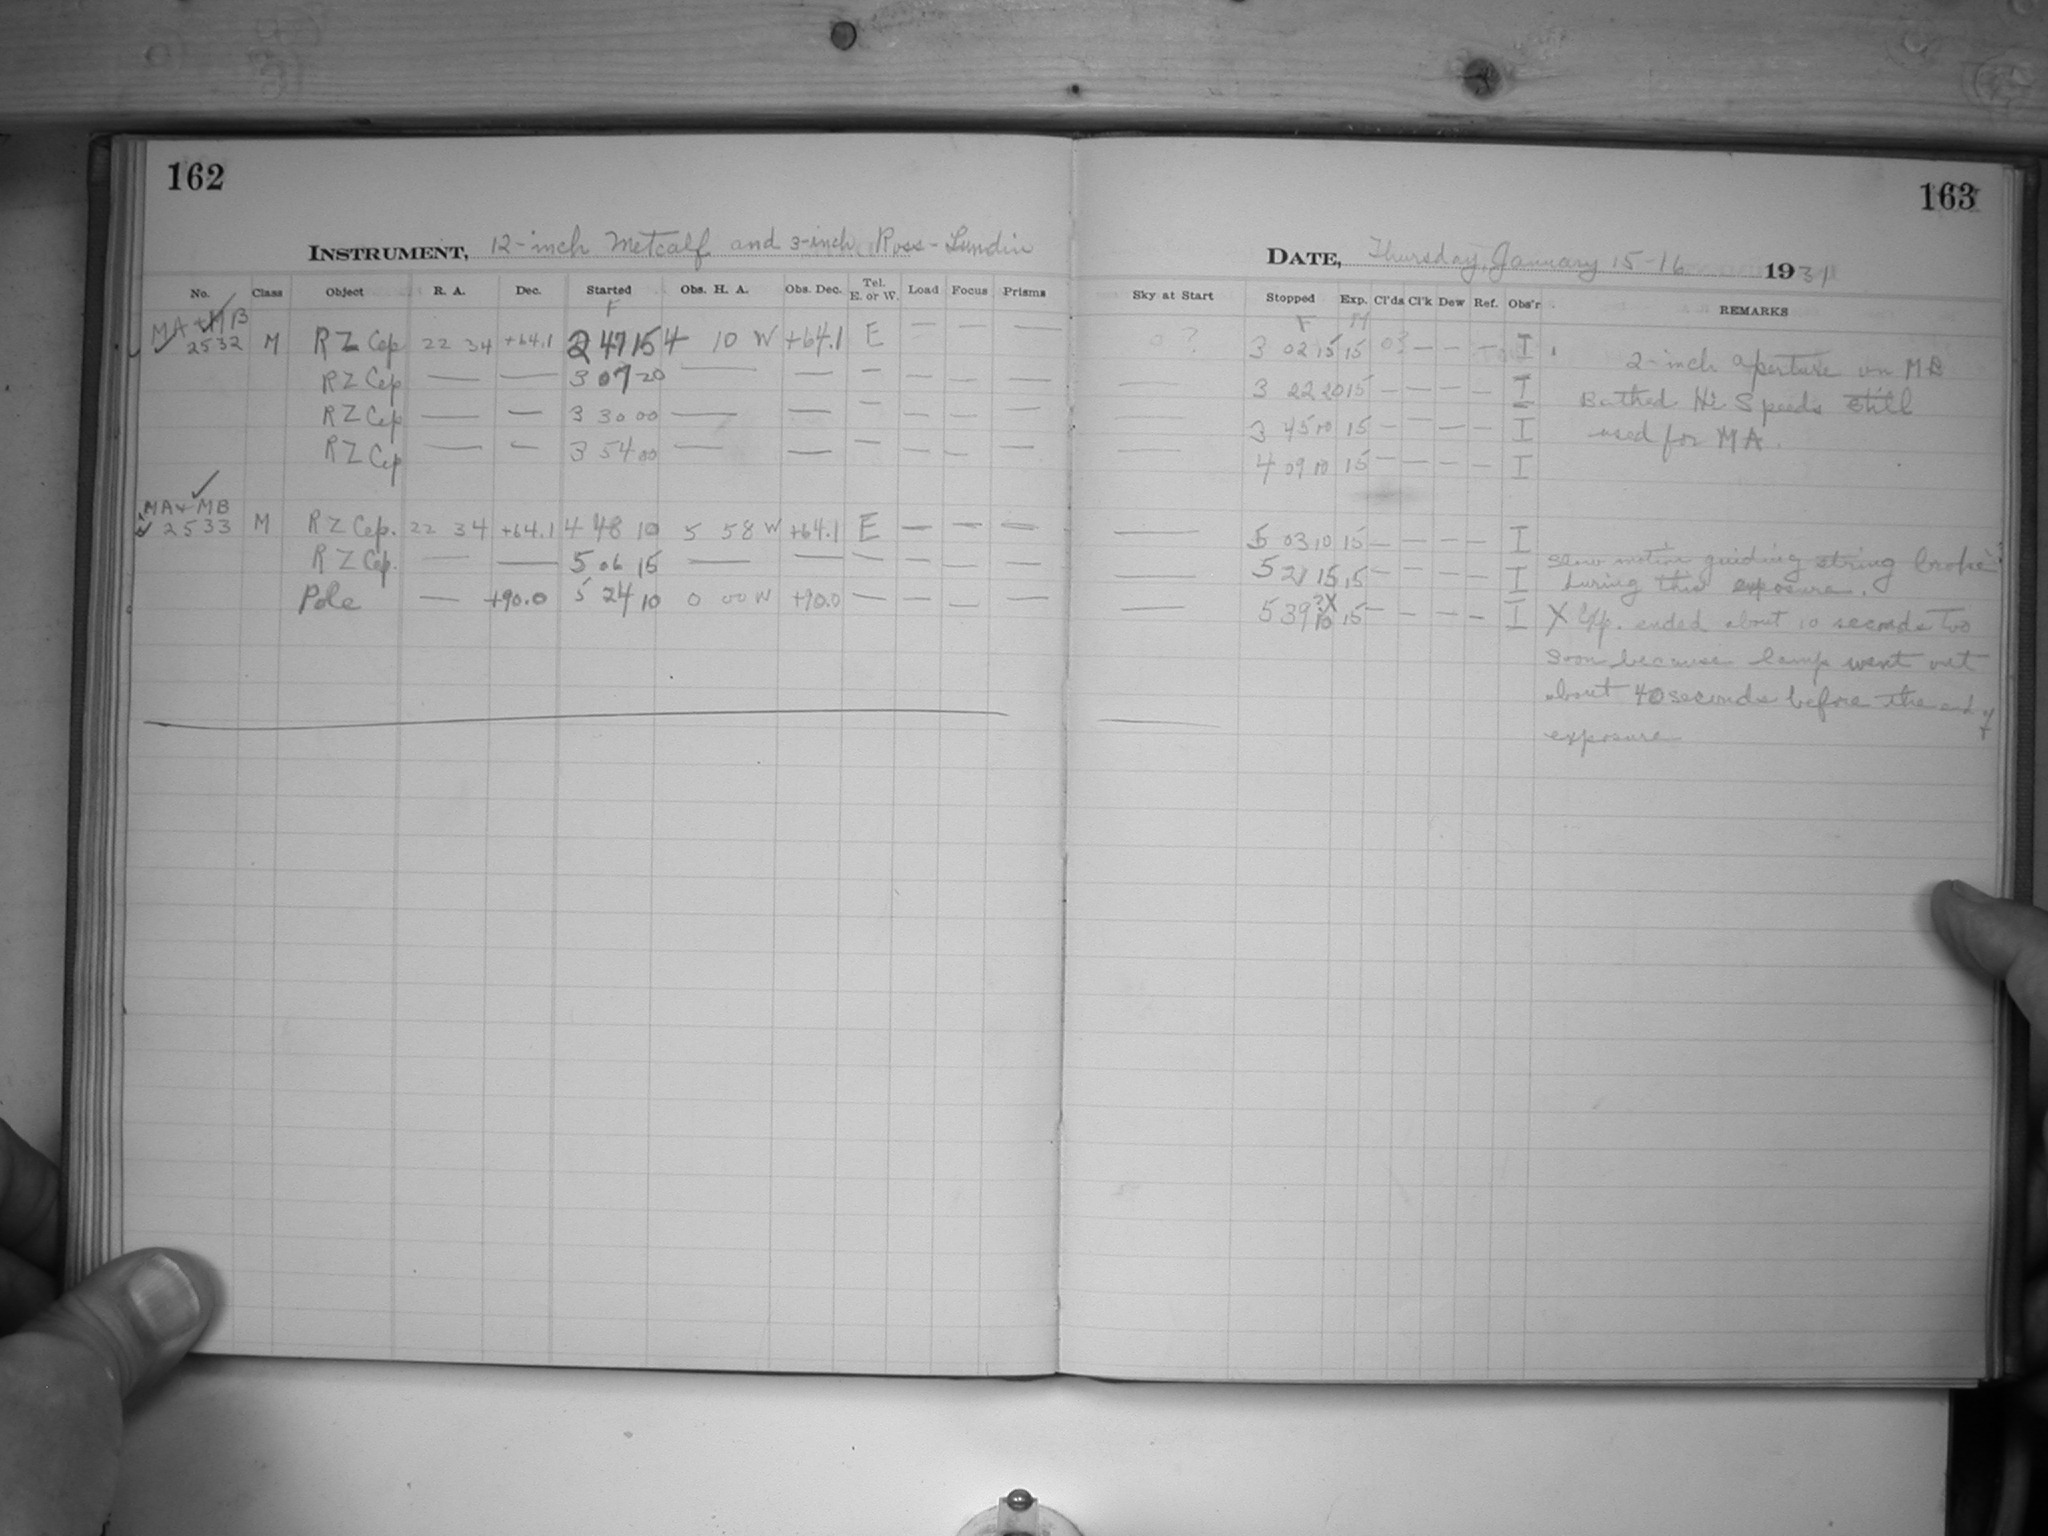 162
163
INSTRUMENT, 12-inch Metcalf and 3-inch Ross-Lundin
DATE, Thursday, January 15-16 1931
No. Class Object R. A. Dec. Started Obs. H. A. Obs. Dec. Tel. E. or W. Load Focus Prisms
Sky at Start Stopped Exp. Cl'ds Cl'k Dew Ref. Obs'r REMARKS
F
F M
MA + MB
2532 M RZ Cep 22 34 +64.1 2 47 15 4 10 W +64.1 E — — —
0 ? 3 02 15 15 0? — — — I
2-inch aperture on MB
RZ Cep — — 3 07 20 — — — — — —
— 3 22 20 15 — — — — I
Bathed Hi Speeds still
RZ Cep — — 3 30 00 — — — — — —
— 3 45 10 15 — — — — I
used for MA.
RZ Cep — — 3 54 00 — — — — — —
— 4 09 10 15 — — — — I
MA + MB
2533 M RZ Cep. 22 34 +64.1 4 48 10 5 58 W +64.1 E — — —
— 5 03 10 15 — — — — I
Slow motion guiding string broke
RZ Cep. — — 5 06 15 — — — — — —
— 5 21 15 15 — — — — I
during this exposure.
Pole — +90.0 5 24 10 0 00 W +90.0 — — — —
— 5 39 10 ?X 15 — — — — I
X Exp. ended about 10 seconds two
soon because lamp went out
about 40 seconds before the end of
exposure